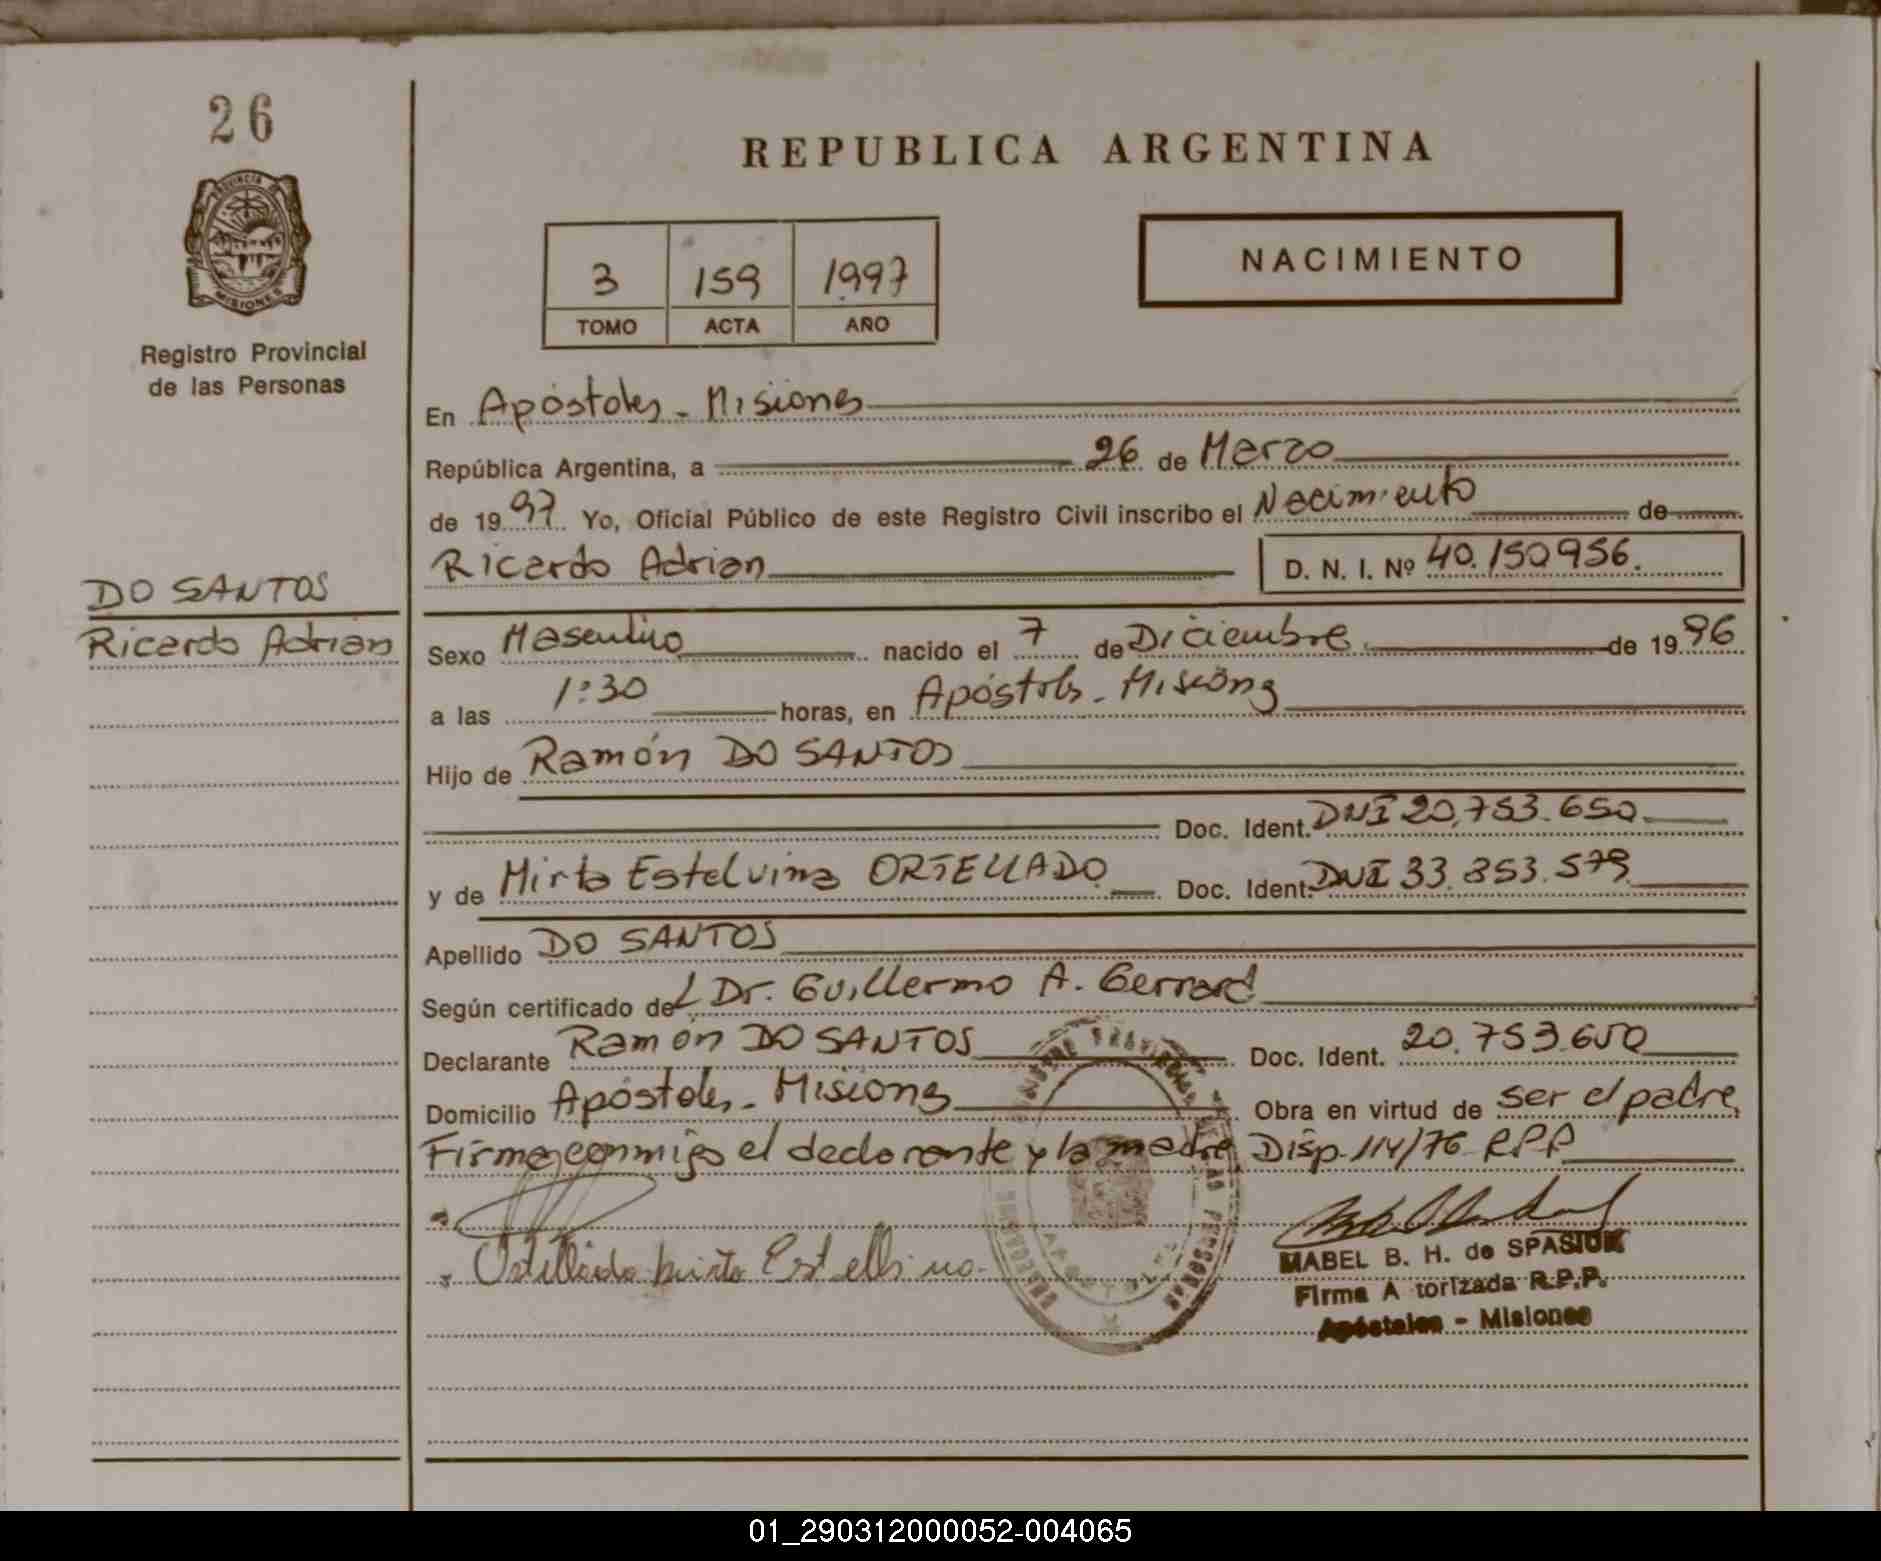 26
PROVINCIA DE
MISIONES
Registro Provincial
de las Personas
DO SANTOS
Ricardo Adrián
REPUBLICA ARGENTINA
3 159 1997
TOMO ACTA AÑO
NACIMIENTO
En Apóstoles - Misiones
República Argentina, a 26 de Marzo
de 1997 Yo, Oficial Público de este Registro Civil inscribo el Nacimiento de
Ricardo Adrian D. N. I. Nº 40.150956.
Sexo Masculino nacido el 7 de Diciembre de 1996
a las 1:30 horas, en Apóstoles - Misiones
Hijo de Ramón DO SANTOS
Doc. Ident. DNI 20.753.650
y de Mirta Estelvina ORTELLADO Doc. Ident. DNI 33.353.579
Apellido DO SANTOS
Según certificado del Dr. Guillermo A. Gerrard
Declarante Ramón DO SANTOS Doc. Ident. 20.753.650
Domicilio Apóstoles - Misiones Obra en virtud de ser el padre
Firman conmigo el declarante y la madre Disp. 114/76 RPP
MABEL B. H. de SPASIUK
Firma A torizada R.P.P.
Apóstoles - Misiones
01_290312000052-004065